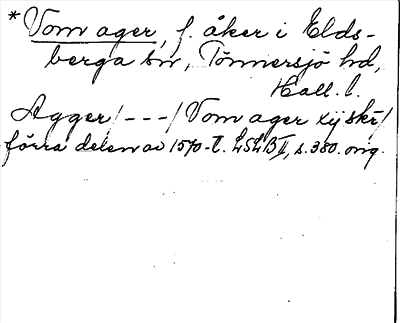 *Vom ager, f. åker i Elds-
berga sn, Tönnersjö hd,
Hall. l.
Agger/---/Vom ager xij skr/
förra delen av 1570-t. LSLB II, s.380. orig.